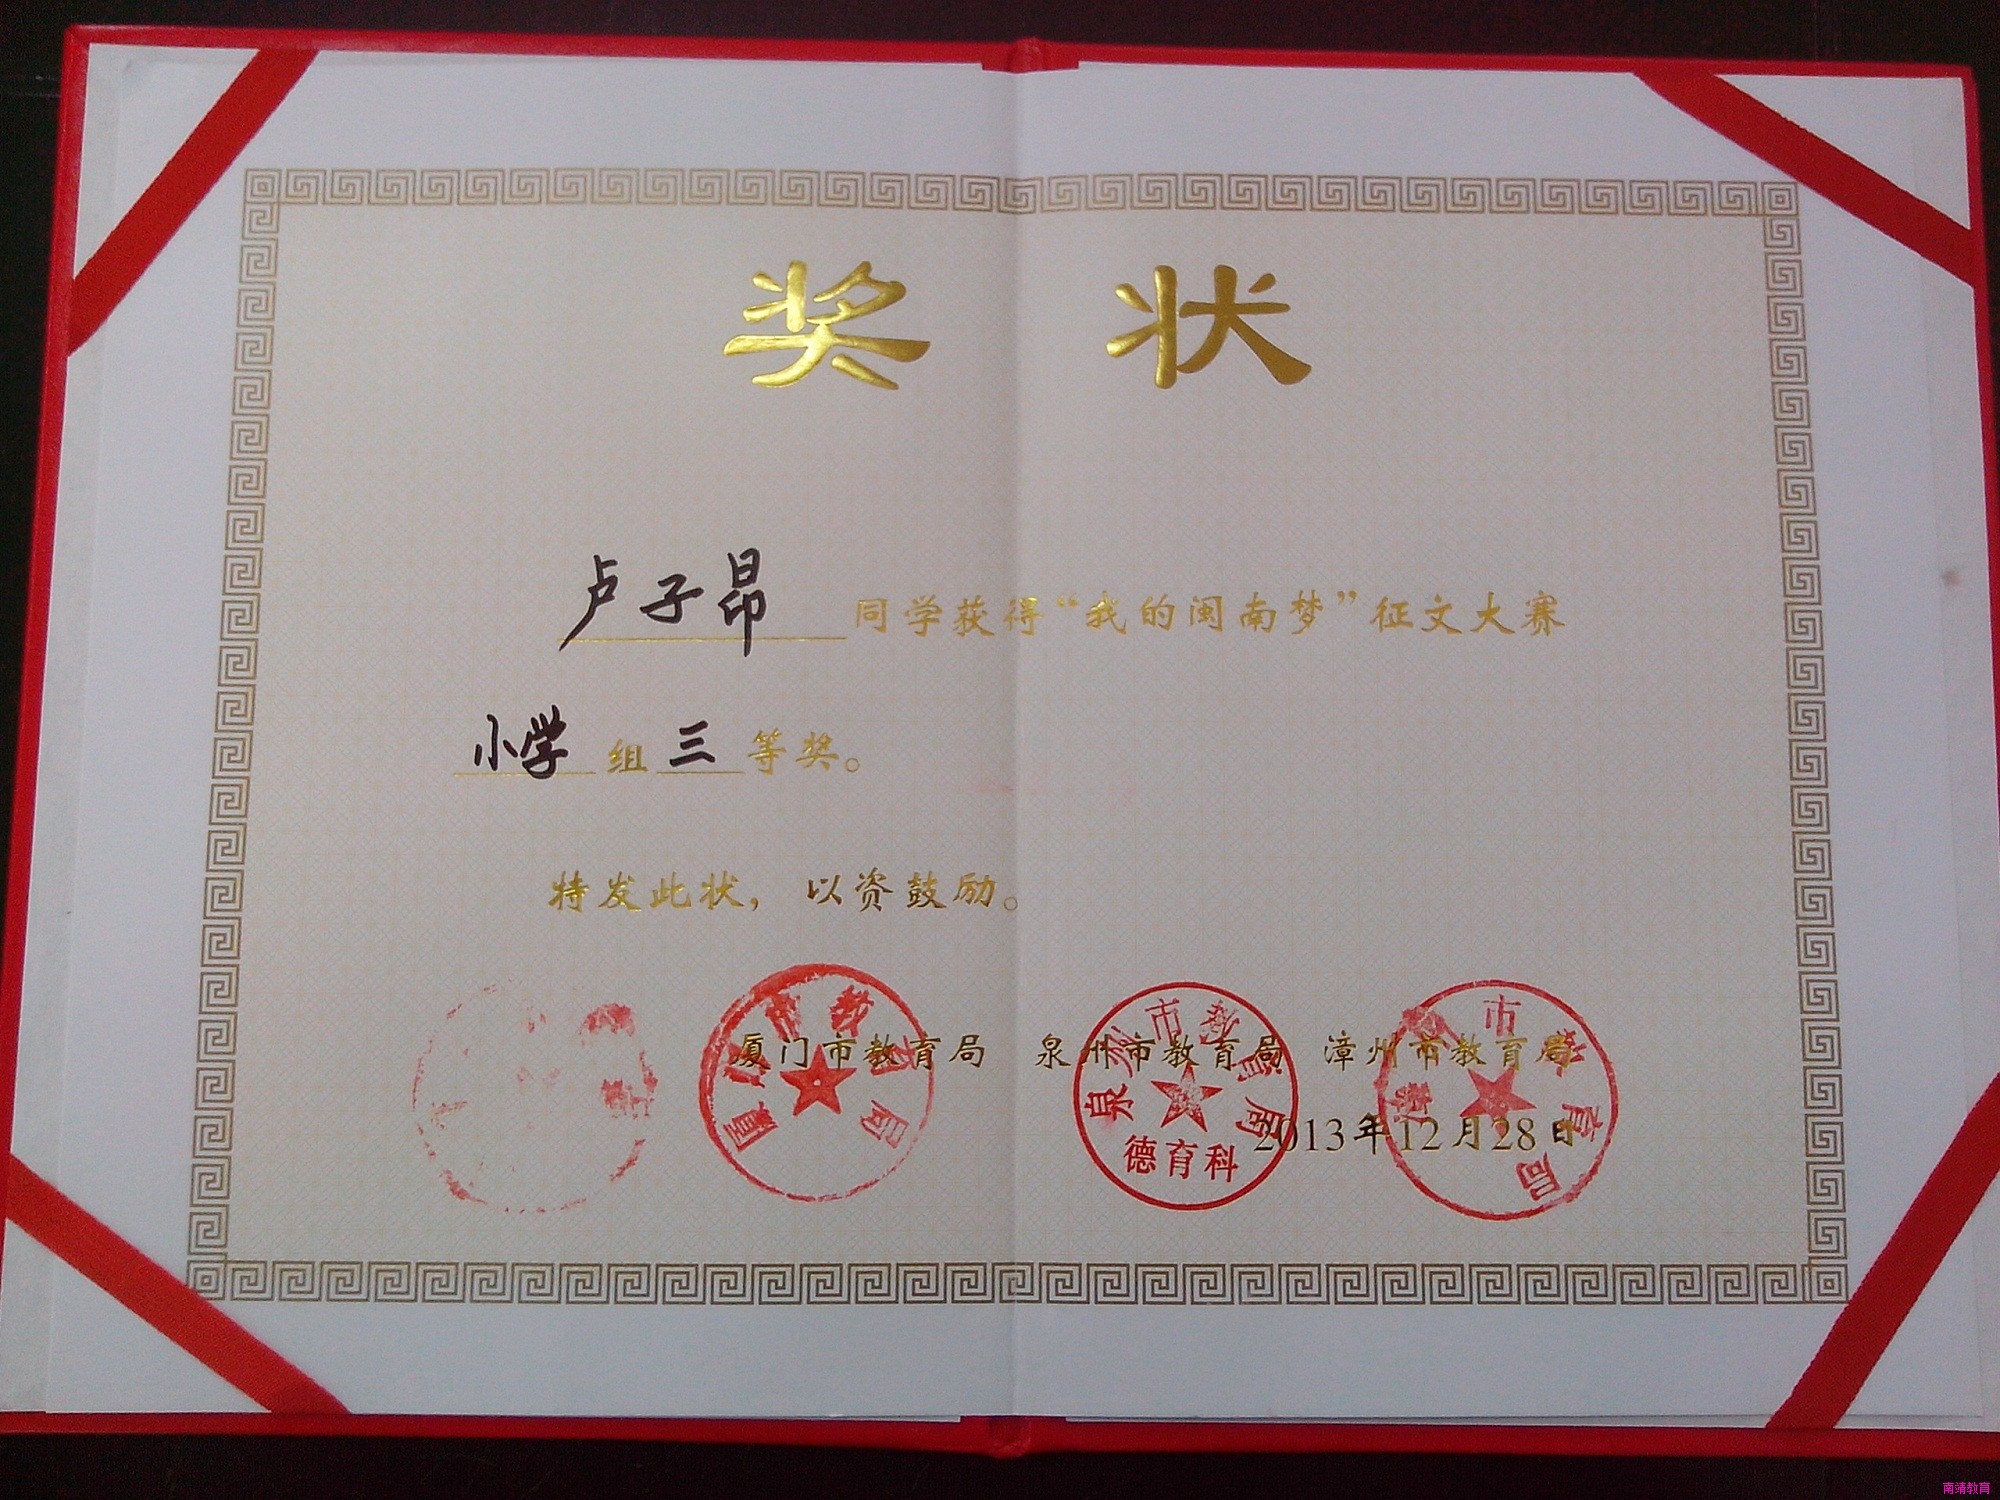 奖 状
卢子昂 同学获得“我的闽南梦”征文大赛
小学 组 三 等奖。
特发此状，以资鼓励。
厦门市教育局 泉州市教育局 漳州市教育局
2013年12月28日
厦门市教育局
泉州市教育局
德育科
漳州市教育局
南靖教育